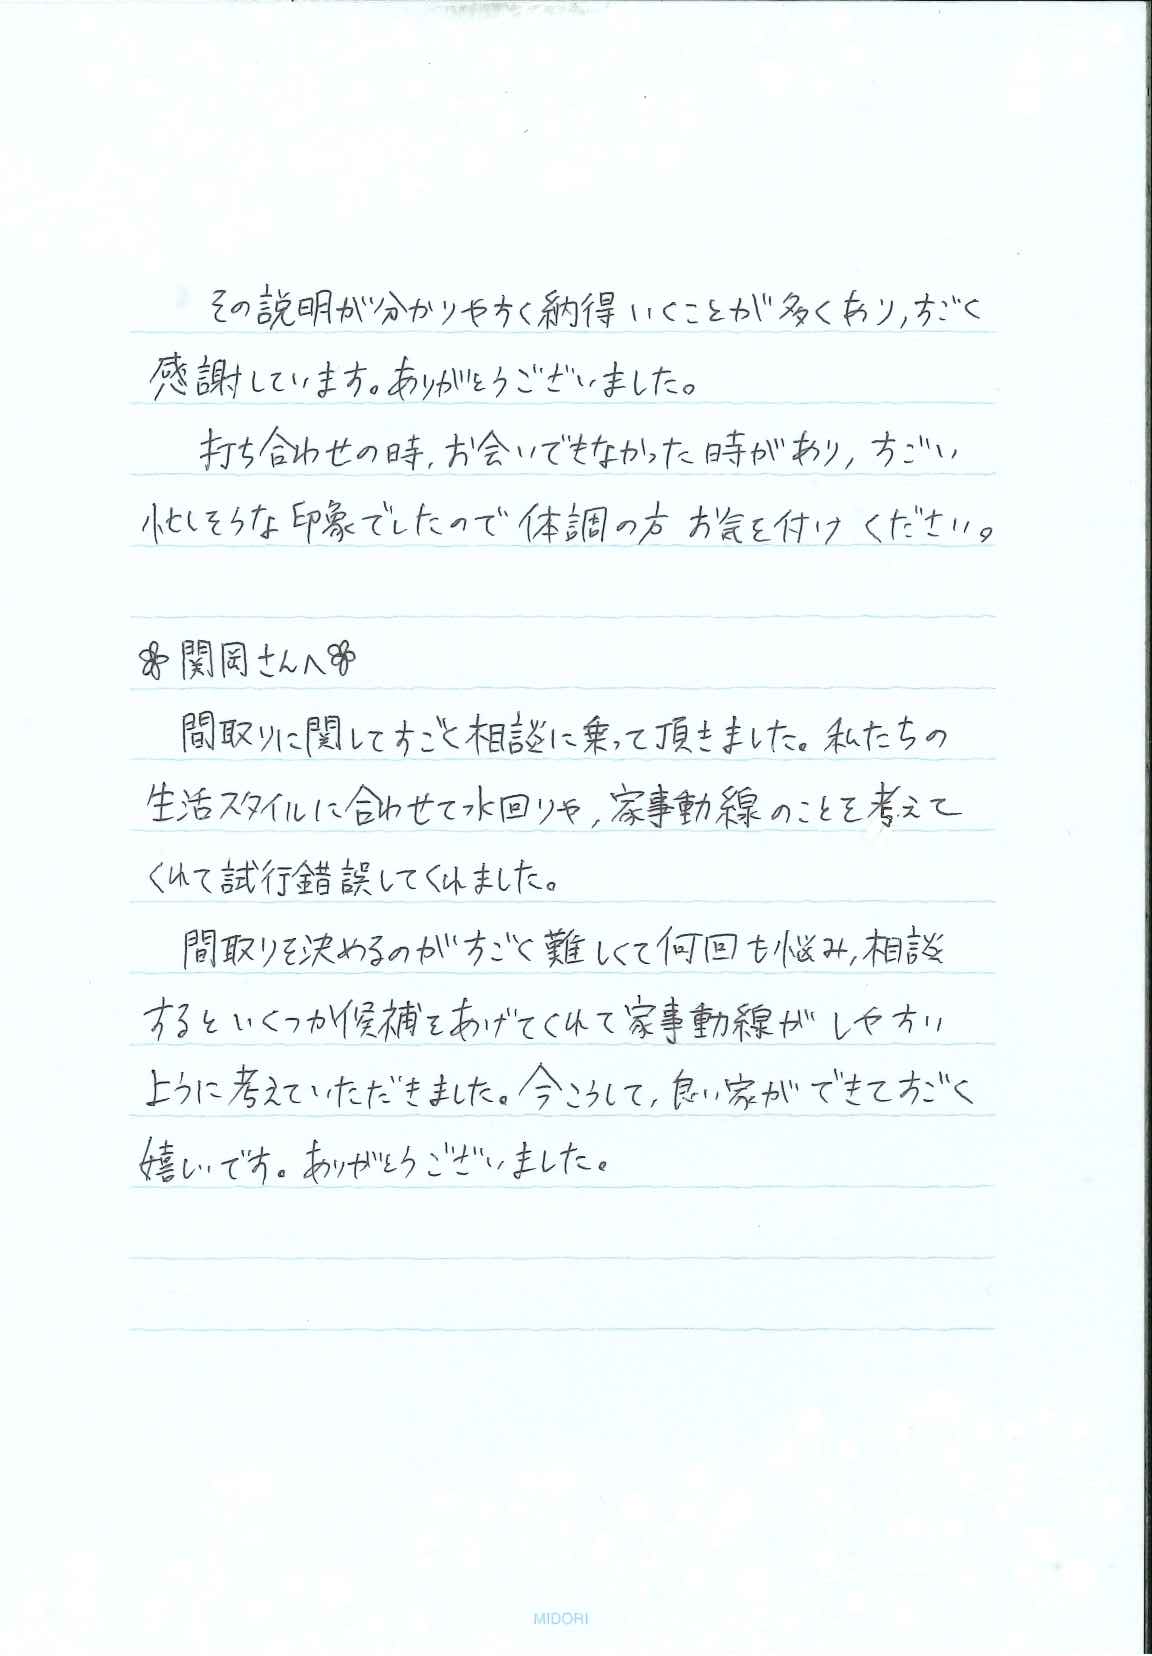 その説明が分かりやすく納得いくことが多くあり,すごく
感謝しています。ありがとうございました。
打ち合わせの時,お会いでもなかった時があり,すごい
忙しそうな印象でしたので体調の方 お気を付けください。
関岡さんへ
間取りに関してすごく相談に乗って頂きました。私たちの
生活スタイルに合わせて水回りや,家事動線のことを考えて
くれて試行錯誤してくれました。
間取りを決めるのがすごく難しくて何回も悩み,相談
するといくつか候補をあげてくれて家事動線がしやすい
ように考えていただきました。今こうして,良い家ができてすごく
嬉しいです。ありがとうございました。
MIDORI